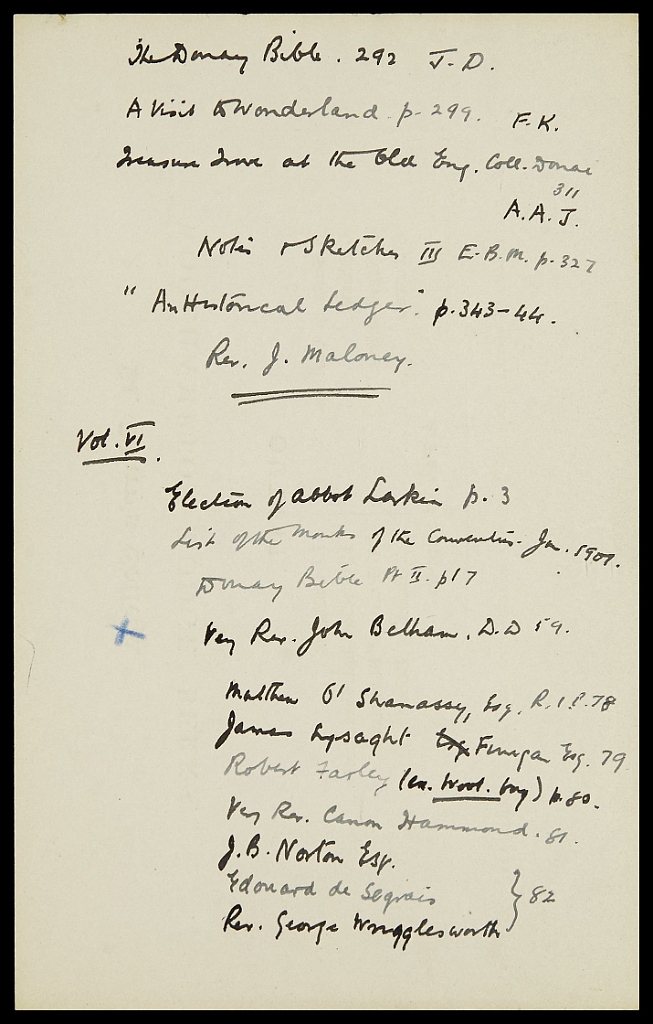 The Douay Bible. 292 J-D.
A Visit to Wonderland p-299. F.K.
Treasure Trove at the Old Eng. Coll. Douai
311
A.A.J.
Notes & Sketches III E.B.M. p.327
"An Historical Ledger". p.343-44.
Rev. J. Maloney.
Vol. VI.
Election of Abbot Larkin p. 3
List of the Monks of the Conventus- Jan. 1901.
Douay Bible Pt II. p17
Very Rev. John Bethan, D.D 59.
Matthew O'Shanassy, Esq. R.I.P. 78
James Lysaght Esq Finegan Esq. 79
Robert Farley (ex. Wool. boy) p.80.
Very Rev. Canon Hammond. 81.
J.B. Norton Esq.
Edouard de Segrais } 82
Rev. George Wrigglesworth